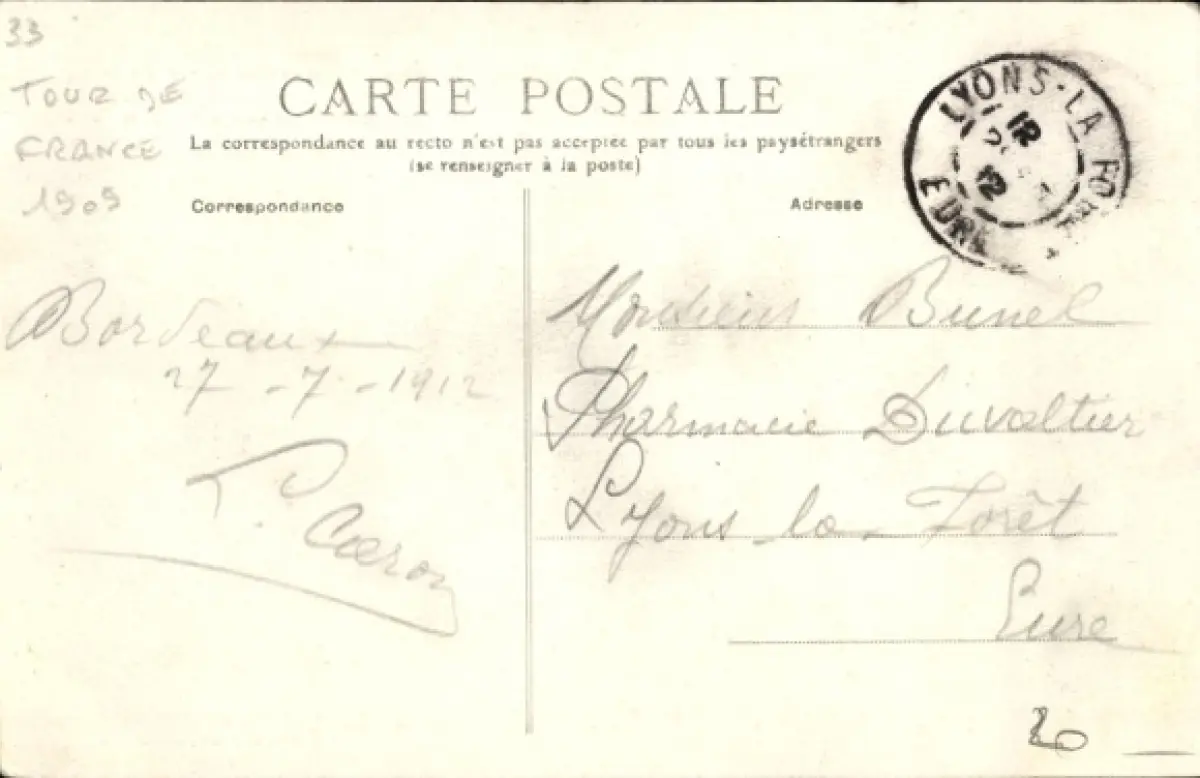 33
TOUR DE
FRANCE
1909
CARTE POSTALE
La correspondance au recto n'est pas acceptée par tous les paysétrangers
(se renseigner à la poste)
Correspondance
Adresse
LYONS-LA FOR
12
12
EURE
Bordeaux
27 - 7 - 1912
Caron
Monsieur Bunel
Pharmacie Duvaltier
Lyons la Forêt
Eure
20